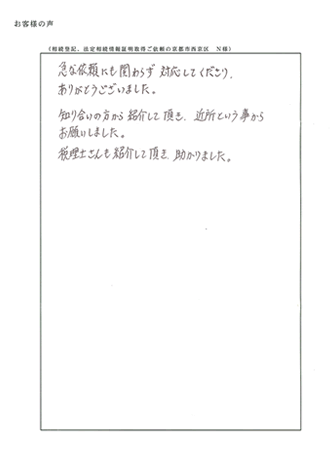 お客様の声
(相続登記、法定相続情報証明取得ご依頼の京都市西京区 N様)
急な依頼にも関わらず 対応してくださり、
ありがとうございました。
知り合いの方から紹介して頂き、近所という事から
お願いしました。
税理士さんも紹介して頂き、助かりました。